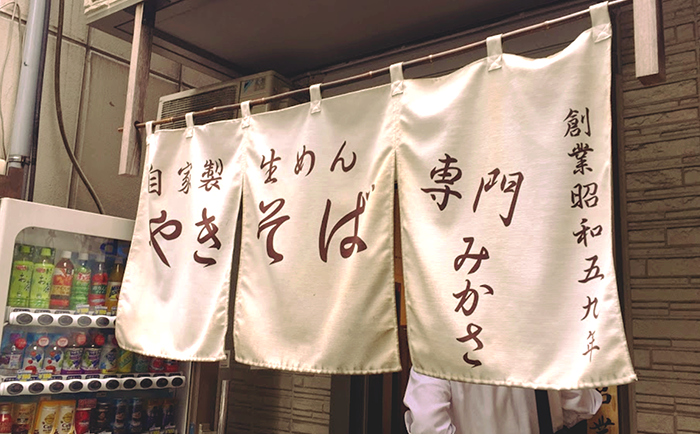 自家製 生めん
やきそば
専門
みかさ
創業昭和五九年